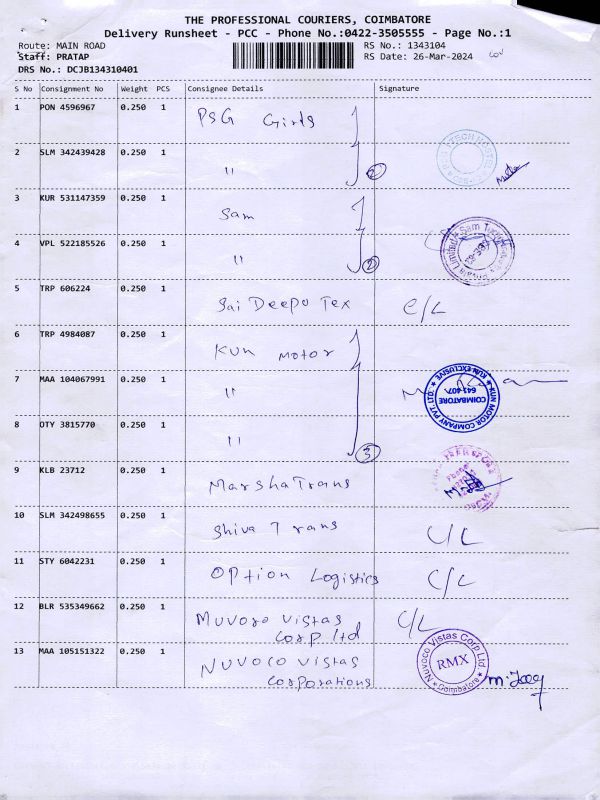 THE PROFESSIONAL COURIERS, COIMBATORE
Delivery Runsheet - PCC - Phone No.:0422-3505555 - Page No.:1
Route: MAIN ROAD RS No.: 1343104
Staff: PRATAP RS Date: 26-Mar-2024
DRS No.: DCJB134310401
S No Consignment No Weight PCS Consignee Details Signature
1 PON 4596967 0.250 1 PSG Girls
2 SLM 342439428 0.250 1 " 2
3 KUR 531147359 0.250 1 Sam
4 VPL 522185526 0.250 1 " 2
5 TRP 606224 0.250 1 Sai Deepu Tex C/L
6 TRP 4984087 0.250 1 Kun Motor
7 MAA 104067991 0.250 1 "
KUN MOTOR COMPANY PVT. LTD.
KUN EXCLUSIVE
COIMBATORE
641 407.
8 OTY 3815770 0.250 1 " 3
9 KLB 23712 0.250 1 Marsha Trans
10 SLM 342498655 0.250 1 Shiva Trans C/L
11 STY 6042231 0.250 1 Option Logistics C/L
12 BLR 535349662 0.250 1 Muvoro Vistas C/L
Corp Ltd
13 MAA 105151322 0.250 1 Nuvoco Vistas
Corporations
Nuvoco Vistas Corp Ltd.
RMX
Coimbatore